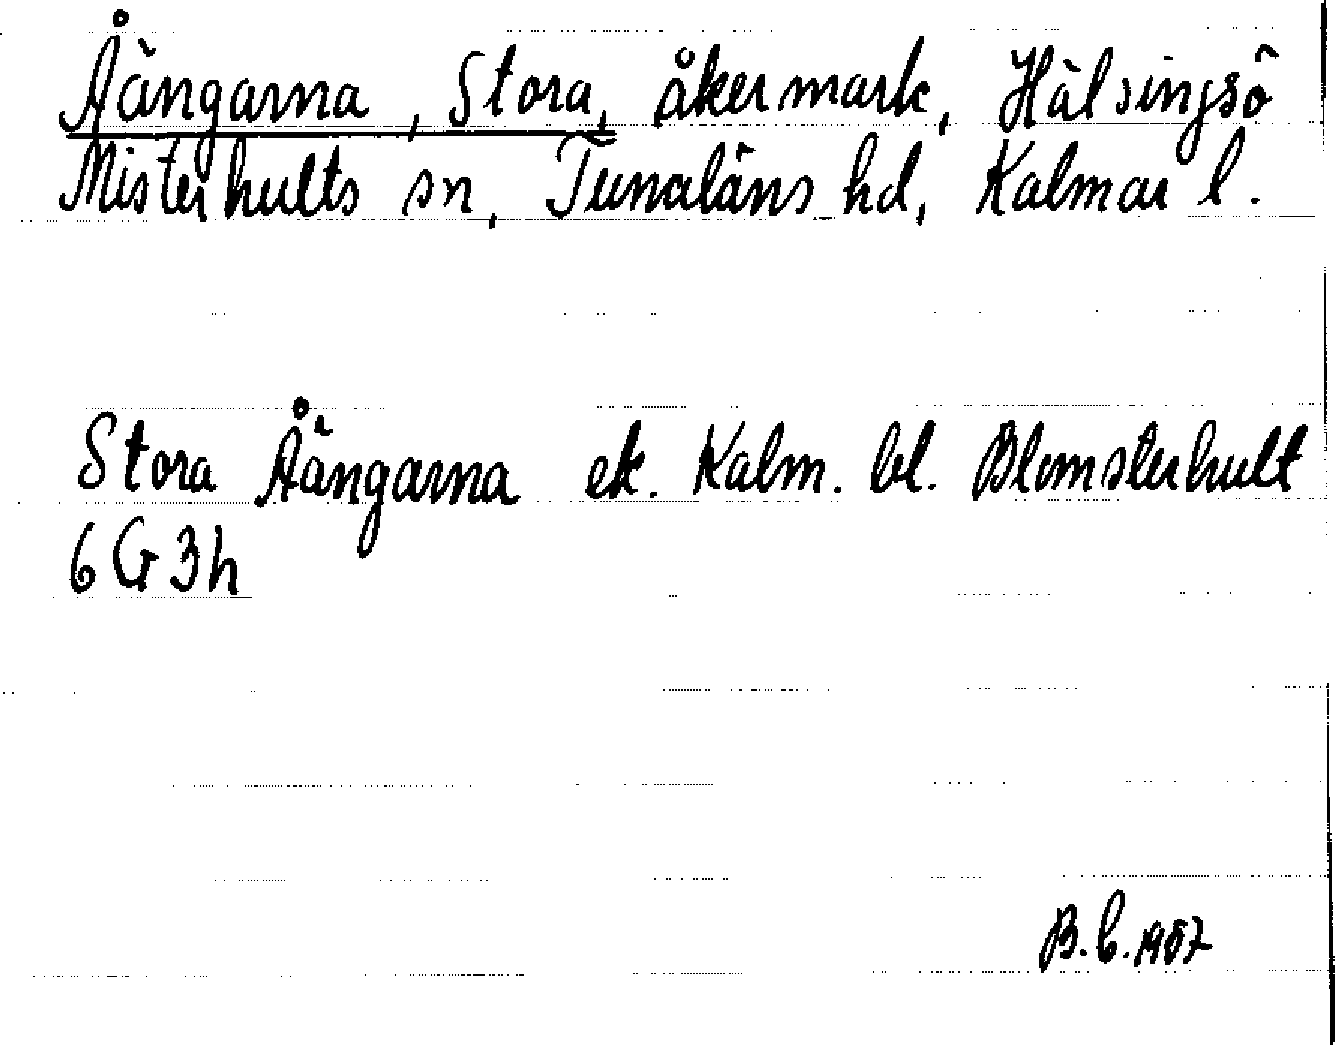 Åängarna, Stora, åkermark, Hälsingsö
Misterhults sn, Tunaläns hd, Kalmar l.
Stora Åängarna ek. Kalm. bl. Blomsterhult
6G3h
B.b.1957